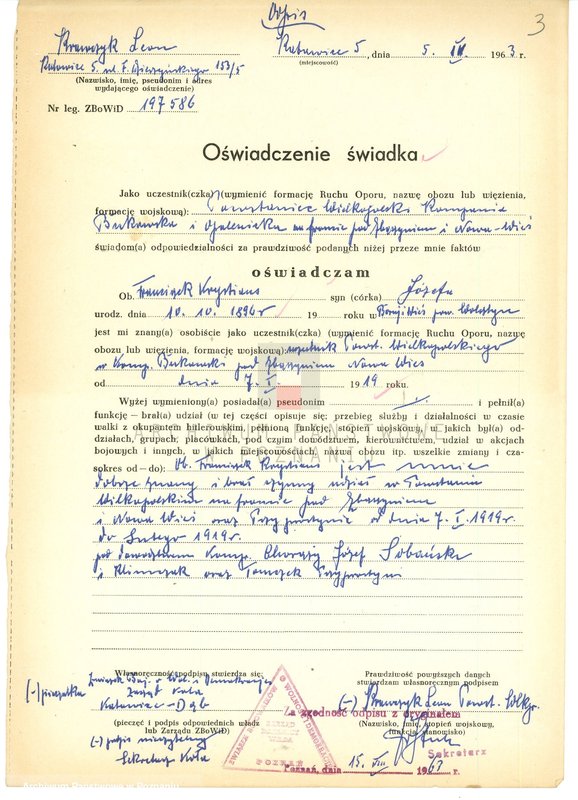 Odpis
3
Krawczyk Leon
Katowice 5, dnia 5. III 1963 r.
(miejscowość)
Katowice 5. ul. F. 153/5
(Nazwisko, imię, pseudonim i adres
wydającego oświadczenie)
Nr leg. ZBoWiD 197586
Oświadczenie świadka
Jako uczestnik(czka) (wymienić formację Ruchu Oporu, nazwę obozu lub więzienia,
formację wojskową): Powstaniec Wielkopolski Kompania
Bukowska i Opalenicka na froncie pod Zbąszyniem i Nowa-Wieś
świadom(a) odpowiedzialności za prawdziwość podanych niżej przeze mnie faktów
oświadczam
Ob. Franciszek Krystians syn (córka) Józefa
urodz. dnia 10. 10. 1896 r 19 roku w pow. Wolsztyn
jest mi znany(a) osobiście jako uczestnik(czka) (wymienić formację Ruchu Oporu, nazwę
obozu lub więzienia, formację wojskową): Powst. Wielkopolskiego
w Komp. Bukowski pod Zbąszyniem Nowa Wieś
od dnia 7. I. 1919 roku.
Wyżej wymieniony(a) posiadał(a) pseudonim i pełnił(a)
funkcję — brał(a) udział (w tej części opisuje się; przebieg służby i działalności w czasie
walki z okupantem hitlerowskim, pełnioną funkcję, stopień wojskowy, w jakich był(a) od-
działach, grupach, placówkach, pod czyim dowództwem, kierownictwem, udział w akcjach
bojowych i innych, w jakich miejscowościach, nazwa obozu itp. wszelkie zmiany i cza-
sokres od — do): Ob. Franciszek Krystians jest mnie
dobrze znany i brał czynny udział w Powstaniu
Wielkopolskim na froncie pod Zbąszyniem
i Nowa Wieś oraz Przyprostynia od dnia 7. I. 1919 r.
do Lutego 1919 r.
pod dowództwem Komp. Chorąży Józef Sobański
i Klimczak oraz Tomczak Przyprostynia
ARCHIWUM PAŃSTWOWE
W POZNANIU
Własnoręczność podpisu stwierdza się:
(-) pieczątka Związek Boj. o Wol. i Demokrację
Zarząd Koła
Katowice - Dąb
(pieczęć i podpis odpowiednich władz
lub Zarządu ZBoWiD)
(-) podpis nieczytelny
Sekretarz Koła
ZWIĄZEK BOJOWNIKÓW O WOLNOŚĆ I DEMOKRACJĘ
ZARZĄD
WILDA
POZNAŃ
Prawdziwość powyższych danych
stwierdzam własnoręcznym podpisem
(-) Krawczyk Leon Powst. Wlkp.
Za zgodność odpisu z oryginałem
(Nazwisko, imię, stopień wojskowy,
funkcja, stanowisko)
Sekretarz
Poznań, dnia 15. VIII 1963 r.
Archiwum Państwowe w Poznaniu